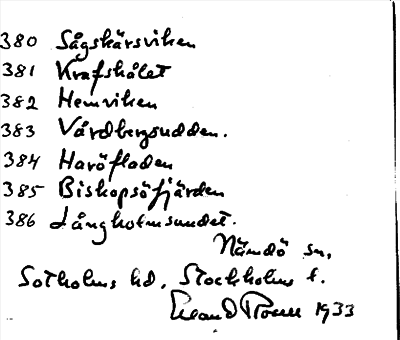 380 Sågskärsviken
381 Krafshålet
382 Hemviken
383 Vårdbergsudden.
384 Haröfladen
385 Biskopsöfjärden
386 Långholmsundet.
Nämdö sn,
Sotholms hd, Stockholms l.
1933